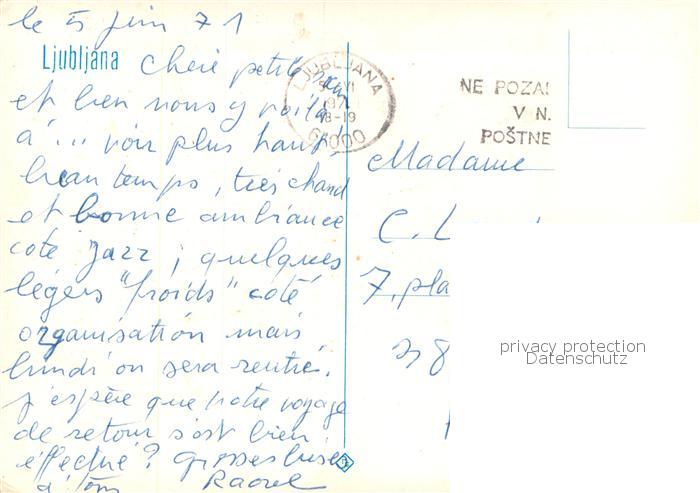 le 5 juin 71
Ljubljana
Chère petite
et bien nous y voilà
à ... voir plus haut!
beau temps, très chaud
et bonne ambiance
coté jazz; quelques
légers "froids" coté
organisation mais
lundi on sera rentré.
J'espère que votre voyage
de retour s'est bien
effectué? grosses bises
à tous
Raoul
LJUBLJANA
VI
18-19
61000
NE POZA
V N.
POŠTNE
Madame
C. L
7, pla
38
privacy protection
Datenschutz